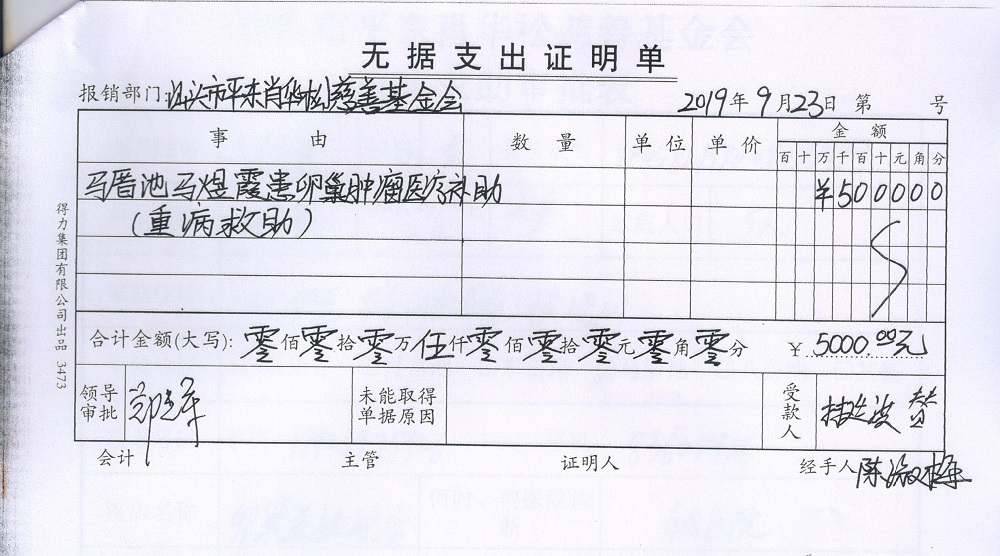 无据支出证明单
报销部门:汕头市平东肖华松慈善基金会 2019年9月23日 第 号
事 由 数 量 单 位 单 价 金 额
百 十 万 千 百 十 元 角 分
马厝池马煜霞患卵巢肿瘤医疗补助 ¥500000
(重病救助)
合计金额(大写): 零佰零拾零万伍仟零佰零拾零元零角零分 ¥ 5000.00元
领导审批 未能取得单据原因 受款人
会计 主管 证明人 经手人
得力集团有限公司出品 3473